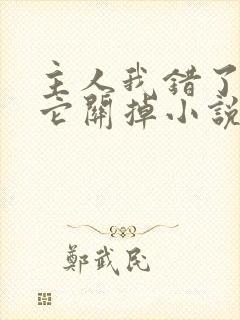 主人我错了
它關掉小說
鄭武民